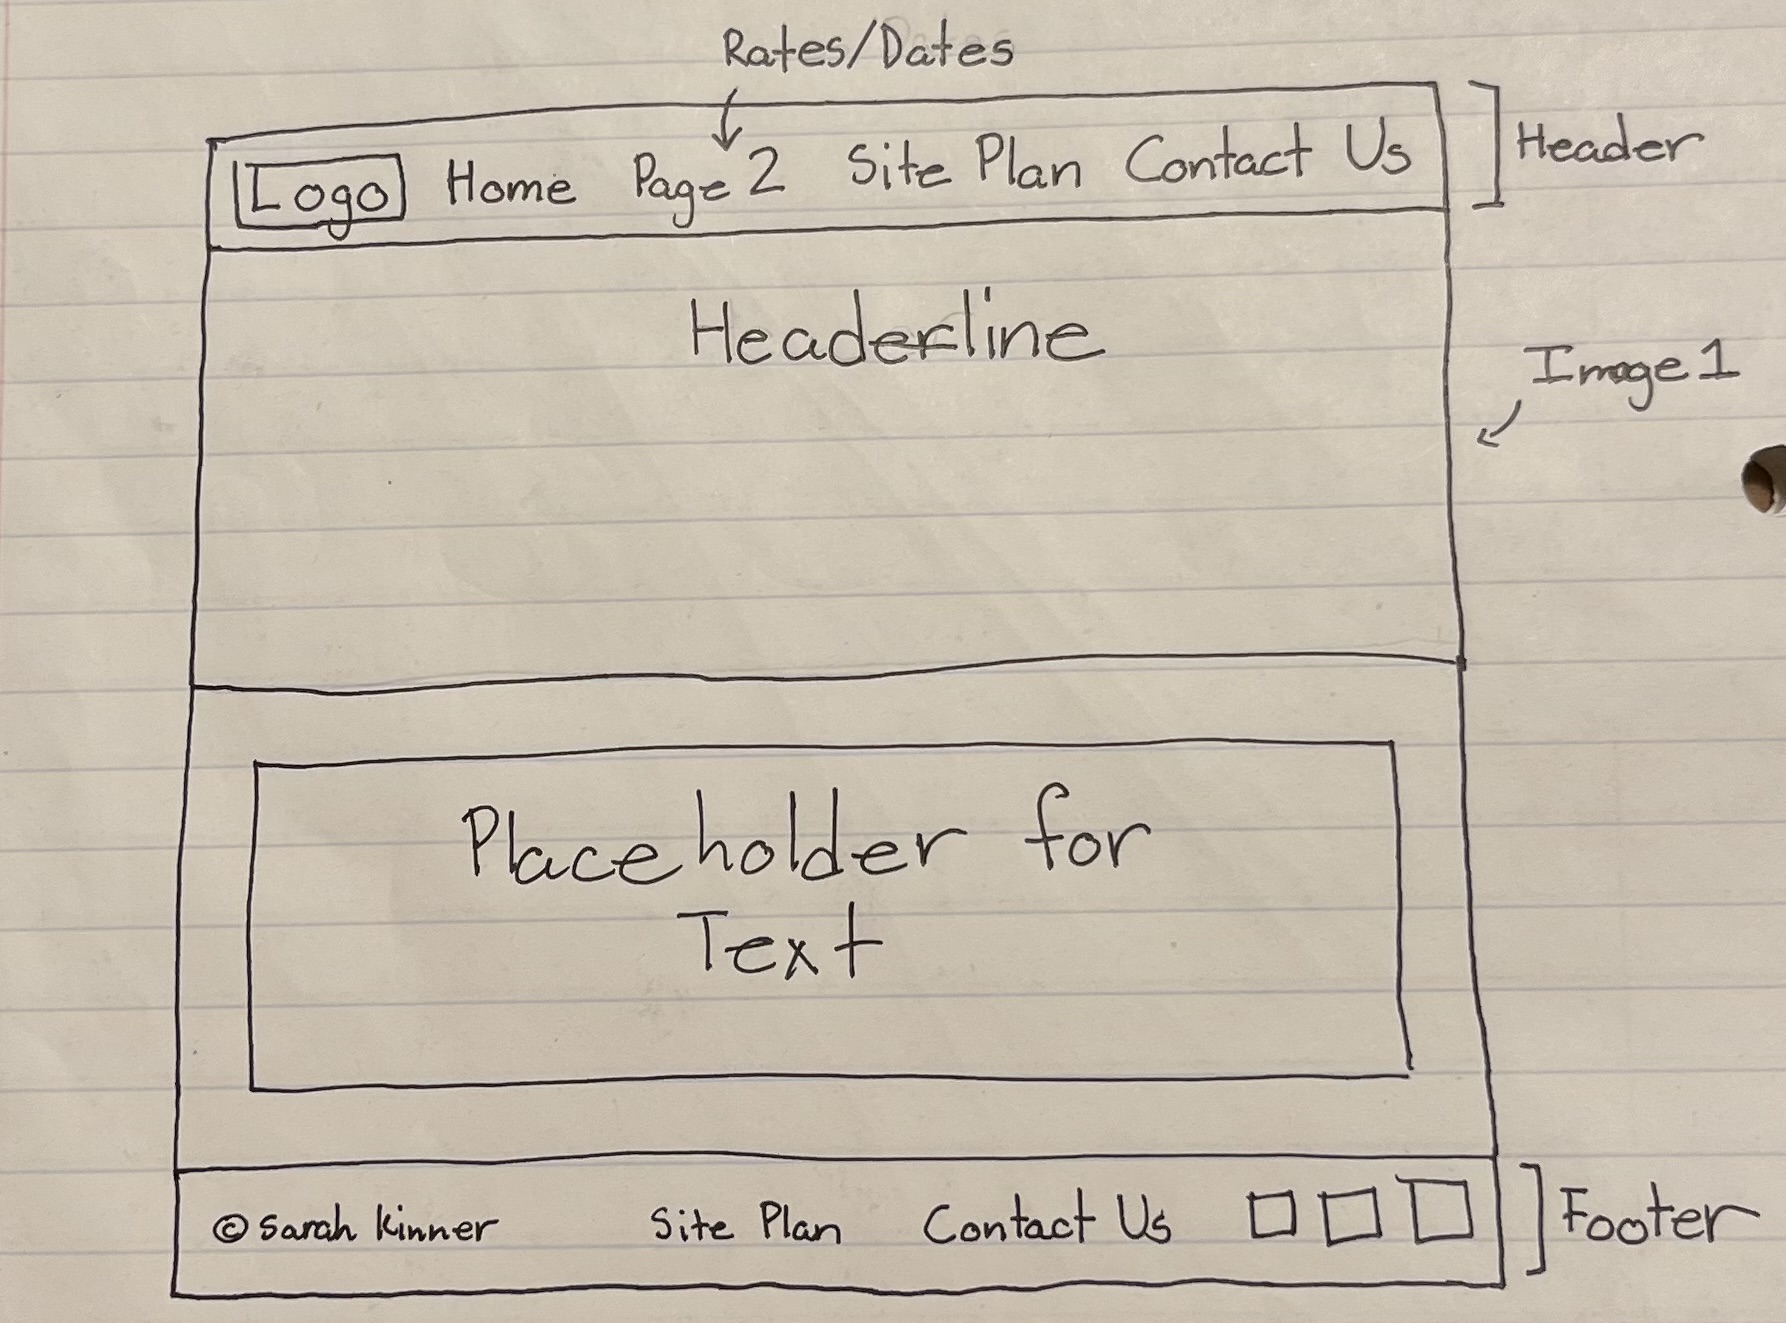 Rates/Dates
Logo Home Page 2 Site Plan Contact Us
Header
Headerline
Image 1
Placeholder for
Text
© Sarah Kinner Site Plan Contact Us
Footer